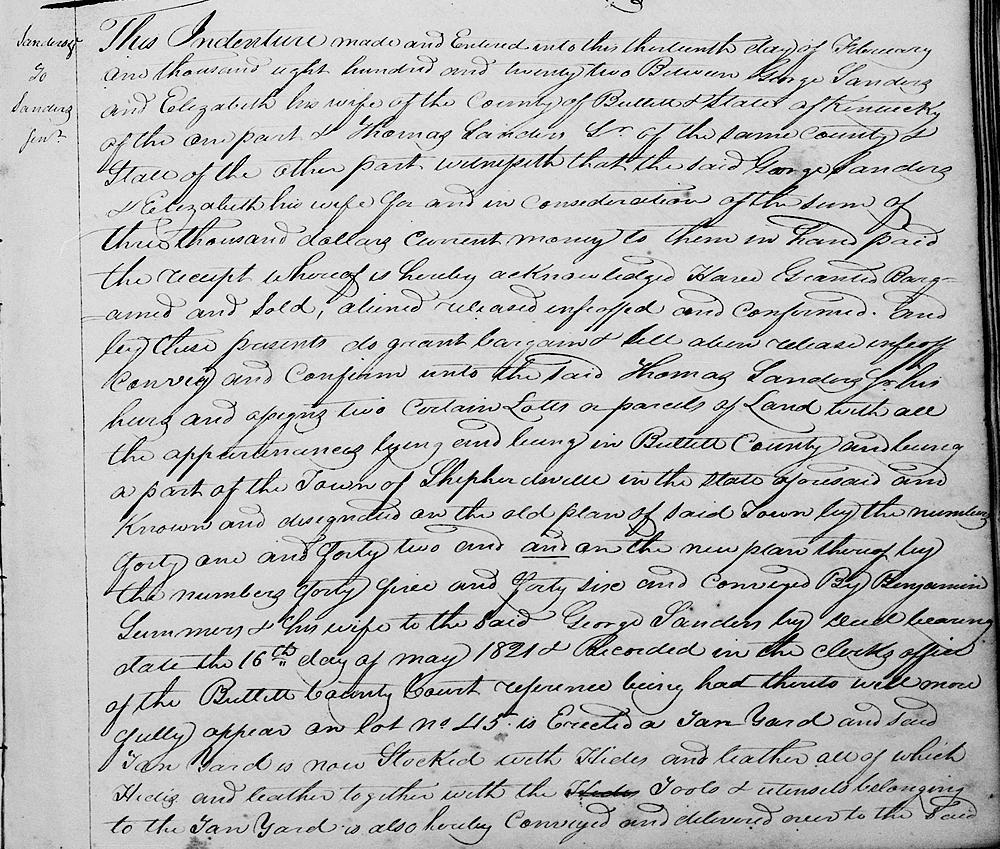 Sanders
To
Sanders
Senr.
This Indenture made and Entered into this thirteenth day of February
one thousand eight hundred and twenty two Between George Sanders
and Elizabeth his wife of the County of Bullitt & State of Kentucky
of the one part & Thomas Sanders Sr. of the same County &
State of the other part witnesseth that the said George Sanders
& Elizabeth his wife for and in consideration of the sum of
three thousand dollars current money to them in hand paid
the receipt whereof is hereby acknowledged Have Granted Barg-
-ained and Sold, aliened released infeoffed and confirmed. and
by these presents do grant bargain & sell alien release infeoff
Convey and Confirm unto the said Thomas Sanders Sr. his
heirs and assigns two Certain Lotts or parcels of Land with all
the appurtenances lying and being in Bullitt County and being
a part of the Town of Shepherdsville in the state aforesaid and
Known and designated on the old plan of said Town by the numbers
forty one and forty two and and on the new plan thereof by
the numbers forty five and forty six and conveyed By Benjamin
Summers & his wife to the said George Sanders by deed bearing
date the 16th day of may 1821 & Recorded in the clerks office
of the Bullitt County Court reference being had thereto will more
fully appear on lot no 45 is Erected a Tan Yard and said
Tan Yard is now Stocked with Hides and leather all of which
Hides and leather together with the Hides Tools & utensils belonging
to the Tan Yard is also hereby Conveyed and delivered over to the said